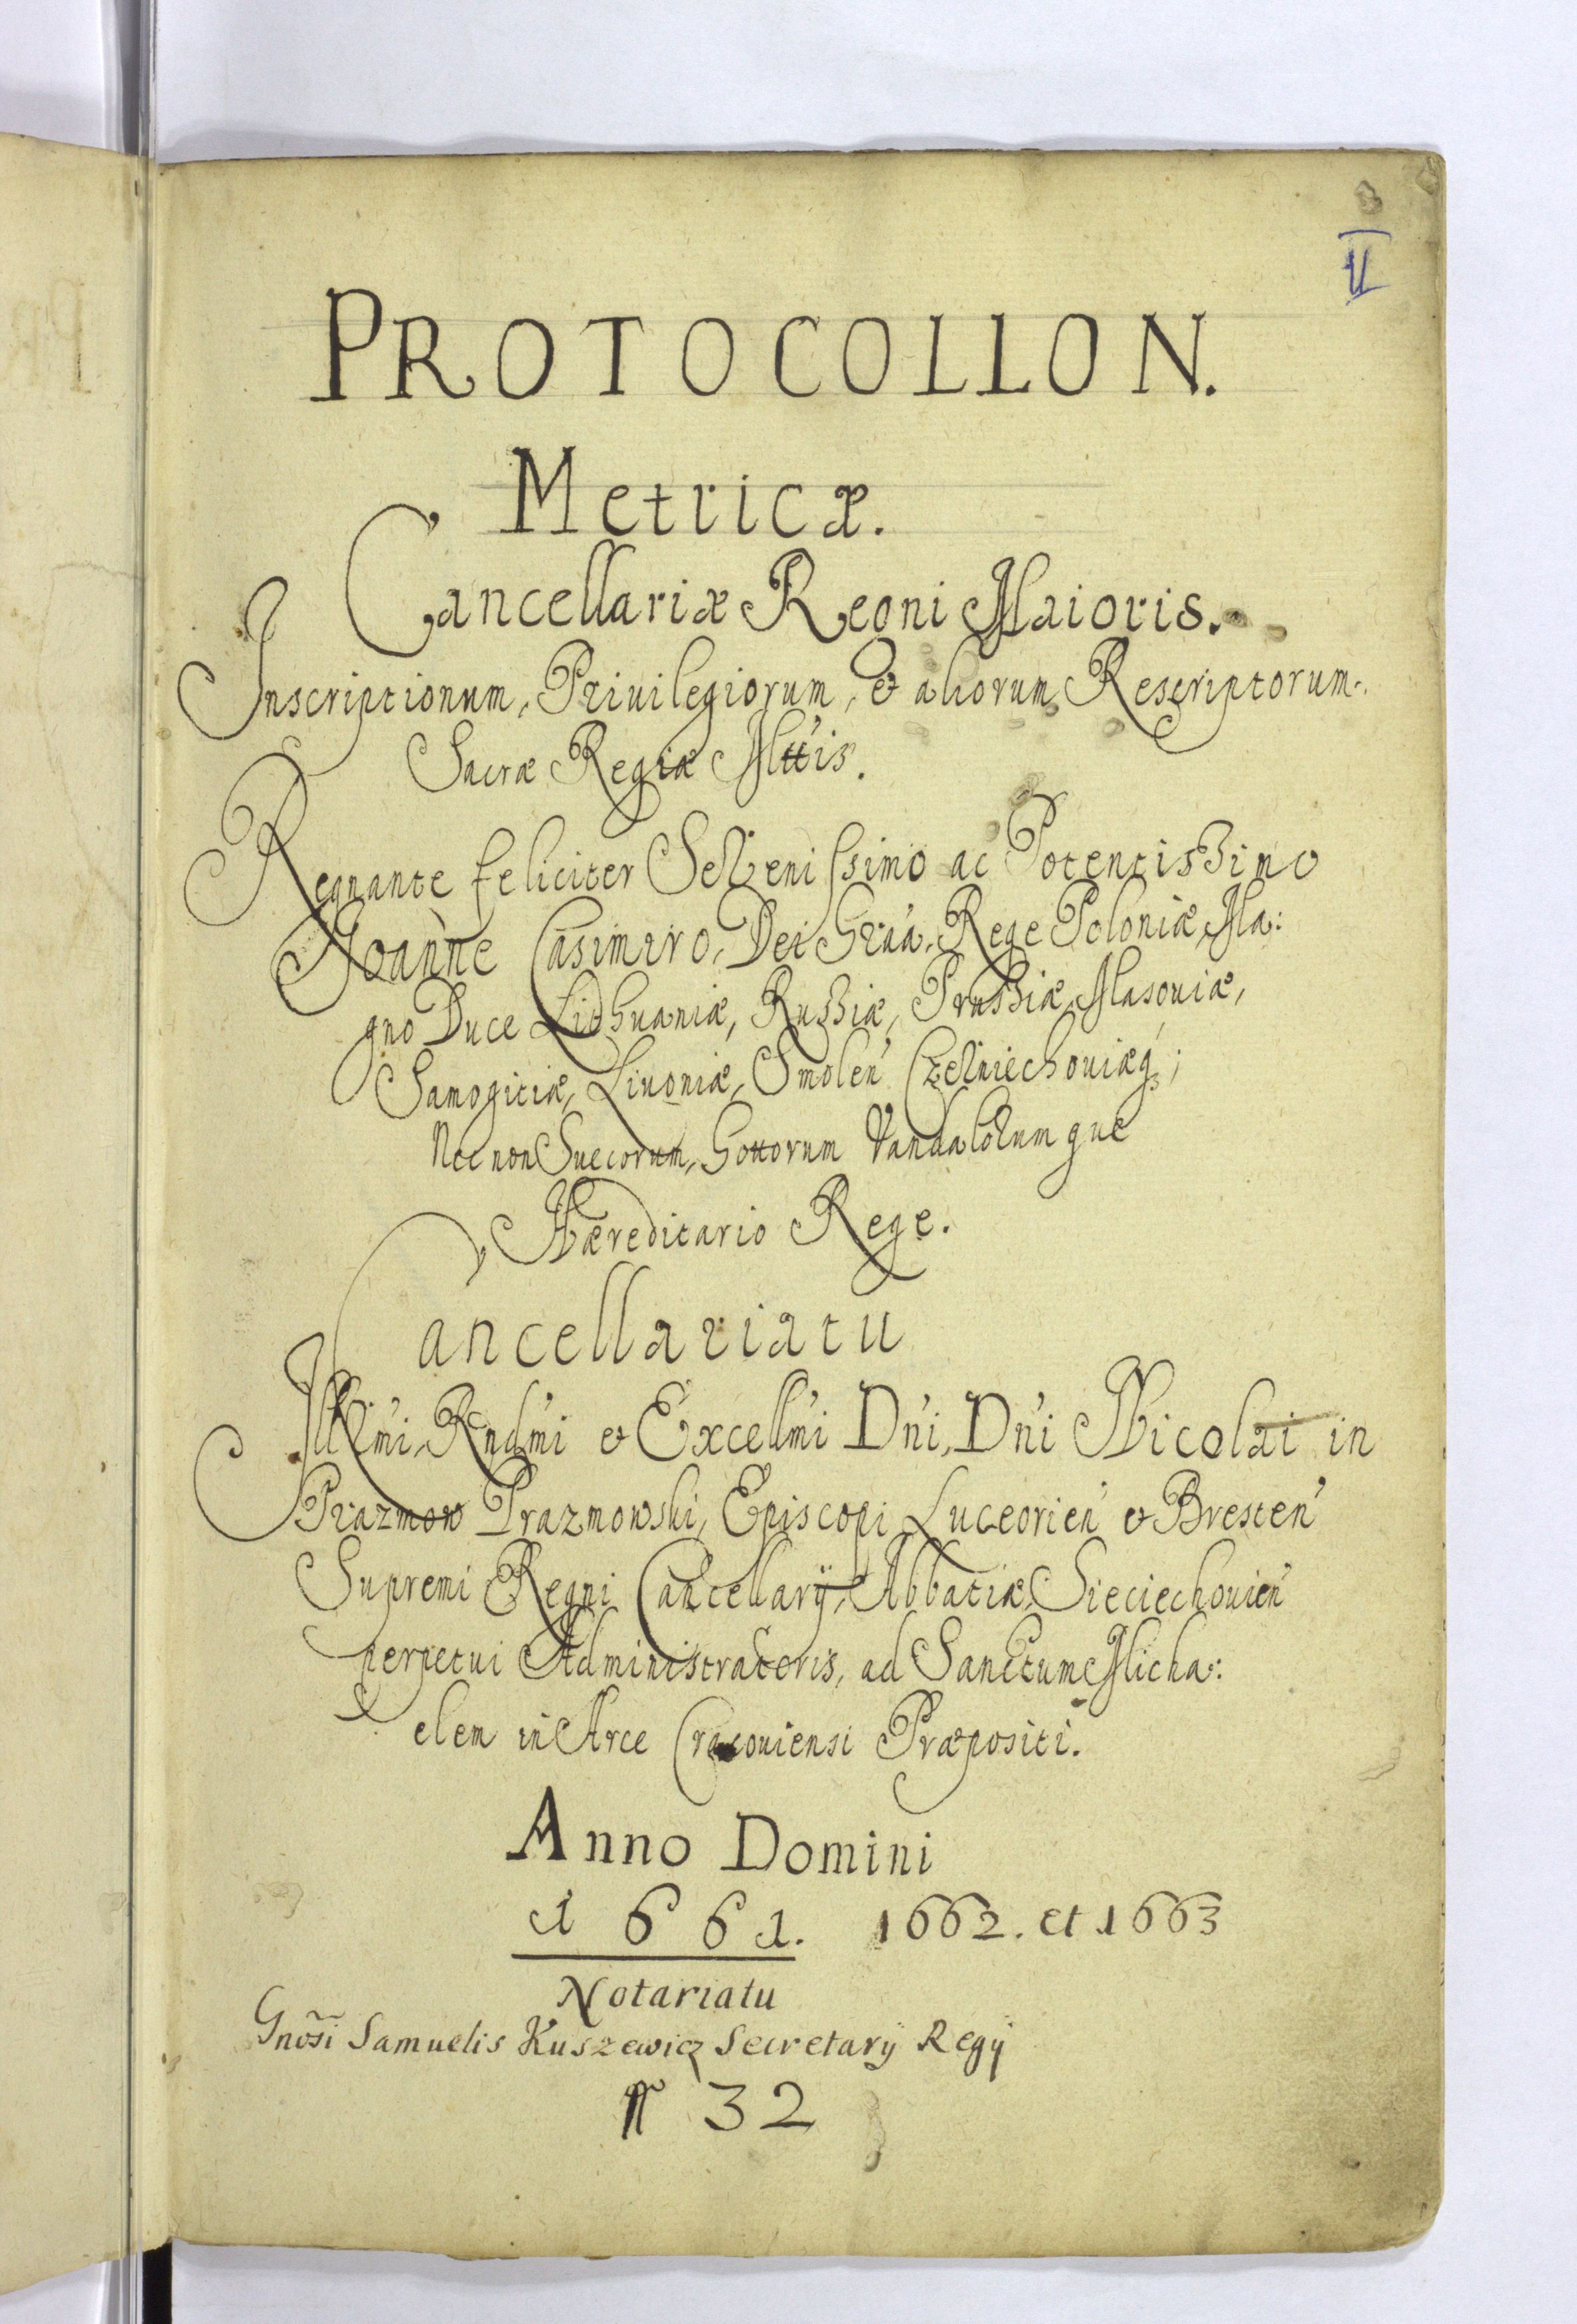 II
PROTOCOLLON.
Metricæ.
Cancellariæ Regni Maioris.
Inscriptionum, Priuilegiorum, et aliorum Rescriptorum.
Sacræ Regiæ Mttis.
Regnante feliciter Serenissimo ac Potentissimo
Joanne Casimiro, Dei Graâ, Rege Poloniæ, Ma:
gno Duce Lithuaniæ, Russiæ, Prussiæ, Masouiæ,
Samogitiæ, Liuoniæ, Smolen̄ Czerniechouiæq;
Nec non Suecorum, Gottorum Vandalorumque
Hæreditario Rege.
Cancellariatu
Illmi, Rndmi et Excellmi Dni, Dni Nicolai in
Prazmow Prazmowski, Episcopi Luceorien̄ et Bresten̄
Supremi Regni Cancellarÿ, Abbatiæ Sieciechouien̄
perpetui Administratoris, ad Sanctum Micha:
elem in Arce Cracouiensi Præpositi.
Anno Domini
1661. 1662. et 1663
Notariatu
Gnosi Samuelis Kuszewicz Secretarÿ Regÿ
32